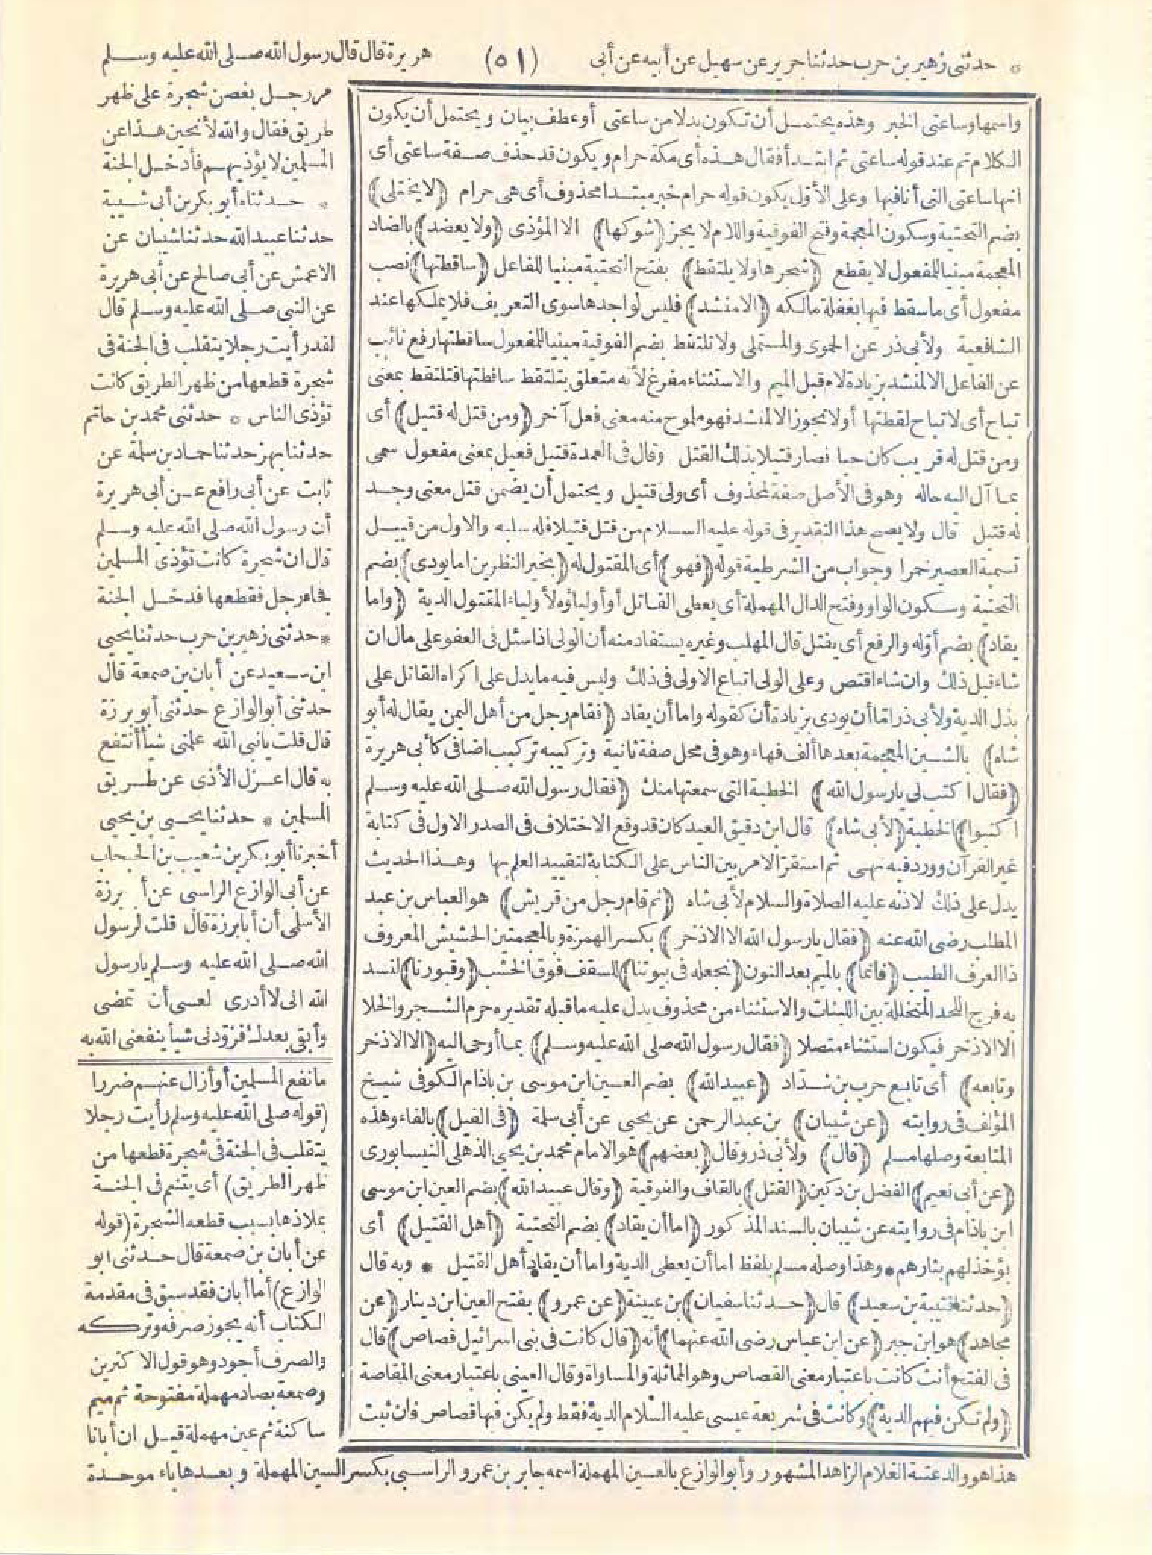 * حدثنى زهير بن حرب حدثنا جرير عن سهيل عن أبيه عن أبى
(٥١)
هريرة قال قال رسول الله صلى الله عليه وسلم
مر رجل بغصن شجرة على ظهر
طريق فقال والله لأنحين هذا عن
المسلمين لا يؤذيهم فأدخل الجنة
* حدثناه أبو بكر بن أبى شيبة
حدثنا عبيد الله حدثنا شيبان عن
الاعمش عن أبى صالح عن أبى هريرة
عن النبى صلى الله عليه وسلم قال
لقد رأيت رجلا يتقلب فى الجنة فى
شجرة قطعها من ظهر الطريق كانت
تؤذى الناس * حدثنى محمد بن حاتم
حدثنا بهز حدثنا حماد بن سلمة عن
ثابت عن أبى رافع عن أبى هريرة
أن رسول الله صلى الله عليه وسلم
قال ان شجرة كانت تؤذى المسلمين
فجاء رجل فقطعها فدخل الجنة
* حدثنى زهير بن حرب حدثنا يحيى
ابن سعيد عن أبان بن صمعة قال
حدثنى أبو الوازع حدثنى أبو برزة
قال قلت يا نبى الله علمنى شيأ أنتفع
به قال اعزل الأذى عن طريق
المسلمين * حدثنا يحيى بن يحيى
أخبرنا أبو بكر بن شعيب بن الحبحاب
عن أبى الوازع الراسبى عن أبى برزة
الأسلمى أن أبا برزة قال قلت لرسول
الله صلى الله عليه وسلم يا رسول
الله انى لا أدرى لعسى أن تمضى
وأبقى بعدك فزودنى شيأ ينفعنى الله به
ما نفع المسلمين أو أزال عنهم ضررا
(قوله صلى الله عليه وسلم رأيت رجلا
يتقلب فى الجنة فى شجرة قطعها من
ظهر الطريق) أى يتنعم فى الجنة
بملاذها بسبب قطعه الشجرة (قوله
عن أبان بن صمعة قال حدثنى أبو
الوازع) أما أبان فقد سبق فى مقدمة
الكتاب أنه يجوز صرفه وتركه
والصرف أجود وهو قول الاكثرين
وصمعة بصاد مهملة مفتوحة ثم ميم
ساكنة ثم عين مهملة قيل ان أبانا
واسمها وساعتى الخبر وهذه يحتمل أن تكون بدلا من ساعتى أو عطف بيان ويحتمل أن يكون
الكلام تم عند قوله ساعتى ثم ابتدأ فقال هذه أى مكة حرام ويكون قد حذف صفة ساعتى أى
انها ساعتى التى أنا فيها وعلى الأول يكون قوله حرام خبر مبتدا محذوف أى هى حرام (لا يختلى)
بضم التحتية وسكون المعجمة وفتح الفوقية واللام لا يجز (شوكها) الا المؤذى (ولا يعضد) بالضاد
المعجمة مبنيا للمفعول لا يقطع (شجرها ولا يلتقط) بفتح التحتية مبنيا للفاعل (ساقطتها) نصب
مفعول أى ما سقط فيها بغفلة مالكه (الا منشد) فليس لواجدها سوى التعريف فلا يملكها عند
الشافعية ولأبى ذر عن الحموى والمستملى ولا تلتقط بضم الفوقية مبنيا للمفعول ساقطتها رفع نائب
عن الفاعل الا لمنشد بزيادة لام قبل الميم والاستثناء مفرغ لأنه متعلق بتلتقط ساقطتها فتلتقط بمعنى
تباح أى لا تباح لقطتها أو لا تجوز الا لمنشد فهو ملوح منه معنى فعل آخر (ومن قتل له قتيل) أى
ومن قتل له قريب كان حيا فصار قتيلا بذلك القتل وقال فى العمدة قتيل فعيل بمعنى مفعول سمى
بما آل اليه حاله وهو فى الأصل صفة لمحذوف أى ولى قتيل ويحتمل أن يضمن قتل معنى وجد
له قتيل قال ولا يصح هذا التقدير فى قوله عليه السلام من قتل قتيلا فله سلبه والاول من قبيل
تسمية العصير خمرا وجواب من الشرطية قوله (فهو) أى المقتول له (بخير النظرين اما يودى) بضم
التحتية وسكون الواو وفتح الدال المهملة أى يعطى القاتل أو أولياؤه لأولياء المقتول الدية (واما
يقاد) بضم أوله والرفع أى يقتل قال المهلب وغيره يستفاد منه أن الولى اذا سئل فى العفو على مال ان
شاء قبل ذلك وان شاء اقتص وعلى الولى اتباع الاولى فى ذلك وليس فيه ما يدل على اكراه القاتل على
بذل الدية ولأبى ذر اما أن يودى بزيادة أن كقوله واما أن يقاد (فقام رجل من أهل اليمن يقال له أبو
شاه) بالشين المعجمة بعدها ألف فهاء وهو فى محل صفة ثانية وتركيبه تركيب اضافى كأبى هريرة
(فقال اكتب لى يا رسول الله) الخطبة التى سمعتها منك (فقال رسول الله صلى الله عليه وسلم
اكتبوا) الخطبة (لأبى شاه) قال ابن دقيق العيد كان قد وقع الاختلاف فى الصدر الاول فى كتابة
غير القرآن وورد فيه نهى ثم استقر الامر بين الناس على الكتابة لتقييد العلم بها وهذا الحديث
يدل على ذلك لاذنه عليه الصلاة والسلام لأبى شاه (ثم قام رجل من قريش) هو العباس بن عبد
المطلب رضى الله عنه (فقال يا رسول الله الا الاذخر) بكسر الهمزة وبالمعجمتين الحشيش المعروف
ذا العرف الطيب (فانما) بالميم بعد النون (نجعله فى بيوتنا) للسقف فوق الخشب (وقبورنا) لنسد
به فرج اللحد المتخللة بين اللبنات والاستثناء من محذوف يدل عليه ما قبله تقديره حرم الشجر والخلا
الا الاذخر فيكون استثناء متصلا (فقال رسول الله صلى الله عليه وسلم) بما أوحى اليه (الا الاذخر
وتابعه) أى تابع حرب بن شداد (عبيد الله) بضم العين ابن موسى بن باذام الكوفى شيخ
المؤلف فى روايته (عن شيبان) بن عبد الرحمن عن يحيى عن أبى سلمة (فى الفيل) بالفاء وهذه
المتابعة وصلها مسلم (قال) ولأبى ذر وقال (بعضهم) هو الامام محمد بن يحيى الذهلى النيسابورى
(عن أبى نعيم) الفضل بن دكين (القتل) بالقاف والفوقية (وقال عبيد الله) بضم العين ابن موسى
ابن باذام فى روايته عن شيبان بالسند المذكور (اما أن يقاد) بضم التحتية (أهل القتيل) أى
يؤخذ لهم بثارهم * وهذا وصله مسلم بلفظ اما أن يعطى الدية واما أن يقاد أهل القتيل * وبه قال
(حدثنا قتيبة بن سعيد) قال (حدثنا سفيان) بن عيينة (عن عمرو) بفتح العين ابن دينار (عن
مجاهد) هو ابن جبر (عن ابن عباس رضى الله عنهما) أنه (قال كانت فى بنى اسرائيل قصاص) قال
فى الفتح وأنث كانت باعتبار معنى القصاص وهو المماثلة والمساواة وقال العينى باعتبار معنى المقاصة
(ولم تكن فيهم الدية) وكانت فى شريعة عيسى عليه السلام الدية فقط ولم يكن فيها قصاص فان ثبت
هذا هو والد عتبة الغلام الزاهد المشهور وأبو الوازع بالعين المهملة اسمه جابر بن عمرو الراسبى بكسر السين المهملة وبعدها باء موحدة